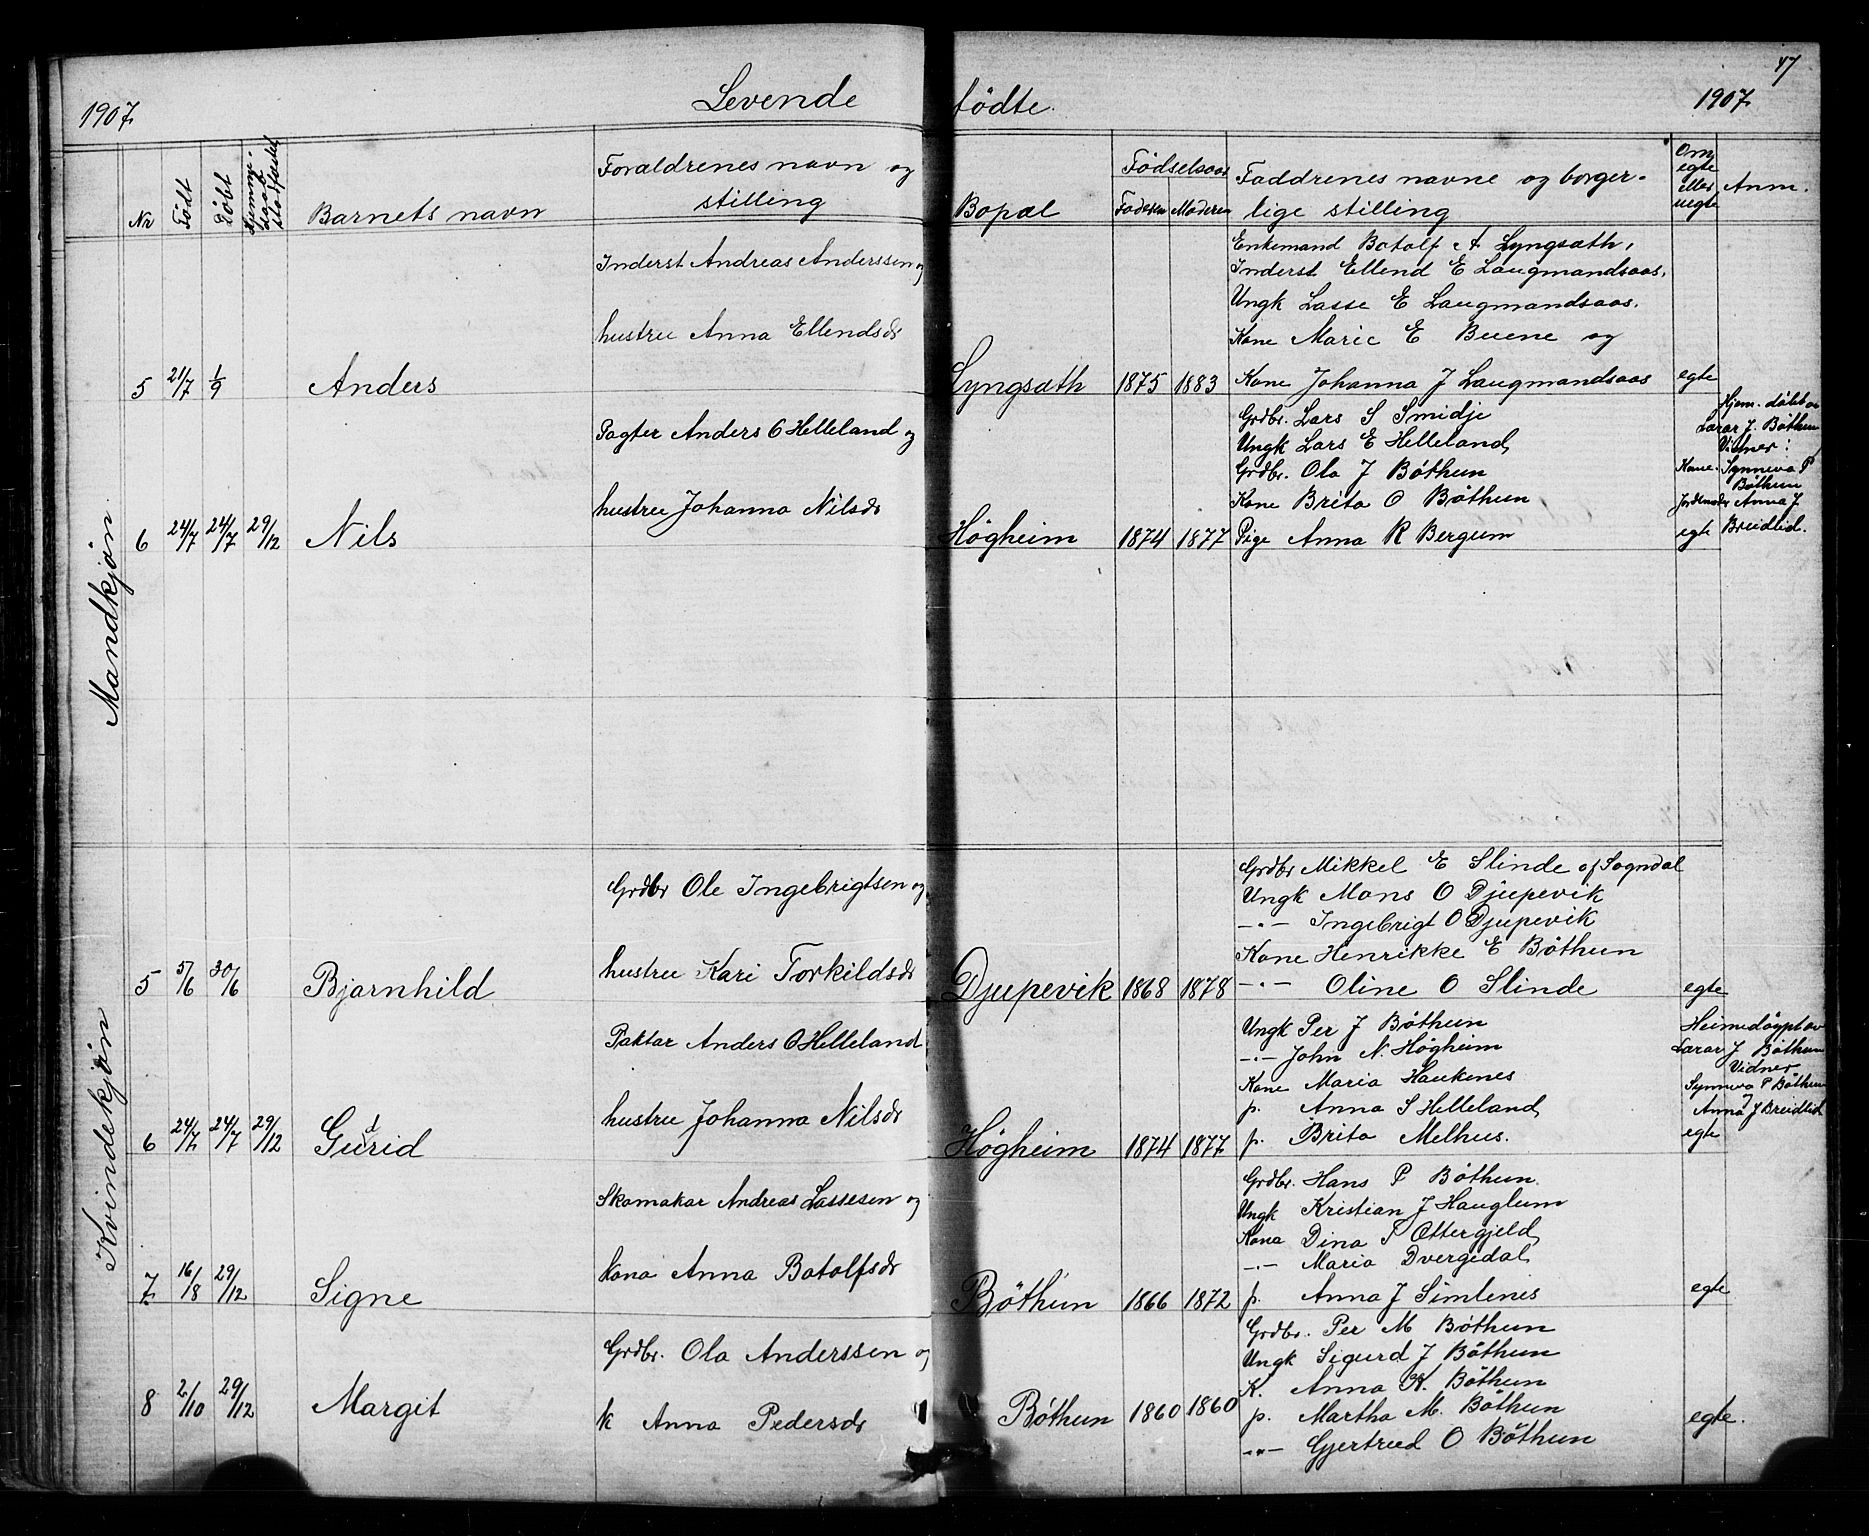 47
1907.
Levende fødte.
1907.
Nr
Født
Døbt
Barnets navn
Foraldrenes navn og
stilling
Bopæl
Fødselsaar
Faderen Moderen
Faddrenes navne og borger-
lige stilling
Om
egte
eller
uegte
Anm.
Mandkjøn
5 21/7 1/9 Anders
Inderst Andreas Anderssen og
hustru Anna Ellendsdr
Lyngsæth 1875 1883
Enkemand Botolf A Lyngsæth,
Inderst Ellend E Laugmandsaas,
Ungk Lasse E Laugmandsaas.
Kone Marie E Buene og
Kone Johanna J Laugmandsaas
egte
6 24/7 24/7 29/12 Nils
Pagter Anders O Helleland og
hustru Johanna Nilsdr
Högheim 1874 1877
Grdbr. Lars S Smidje
Ungk Lars E Helleland
Grdbr. Ola J Böthun
Kone Brita O Böthun
Pige Anna R Bergum
egte
Hjem. døbt av
Lærar J. Böthun
Vidner:
Kone. Synneva P
Böthun
Jordmoder Anna J
Breidlid.
Kvindekjøn
5 5/6 30/6 Bjarnhild
Grdbr Ole Ingebrigtsen og
hustru Kari Torkildsdr
Djupevik 1868 1878
Grdbr Mikkel E Slinde af Sogndal
Ungk Mons O Djupevik
-"- Ingebrigt O Djupevik
Kone Henrikke E Böthun
-"- Oline O Slinde
egte
6 24/7 24/7 29/12 Gurid
d
Paktar Anders O Helleland
hustru Johanna Nilsdr
Högheim 1874 1877
Ungk Per J Böthun
-"- John N. Högheim
Kone Maria Haukenes
p. Anna S Helleland
p. Brita Melhus.
egte
Heimedöypt av
Lærar J Böthun
Vidner
Synneva P Böthun
Anna J Breidlid
7 16/8 29/12 Signe
Skomakar Andreas Lassesen og
kona Anna Botolfsdr
Böthun 1866 1872
Grdbr. Hans P Böthun.
Ungk Kristian J Hauglum
Kona Dina P Ottergjeld
-"- Maria Dvergedal
p. Anna J Simlenes
egte
8 2/10 29/12 Margit
Grdbr. Ola Anderssen og
k Anna Pedersdr
Böthun 1860 1860
Grdbr. Per M Böthun
Ungk Sigurd J Böthun
K. Anna K. Böthun
p. Martha M. Böthun
-"- Gjertrud O Böthun
egte.